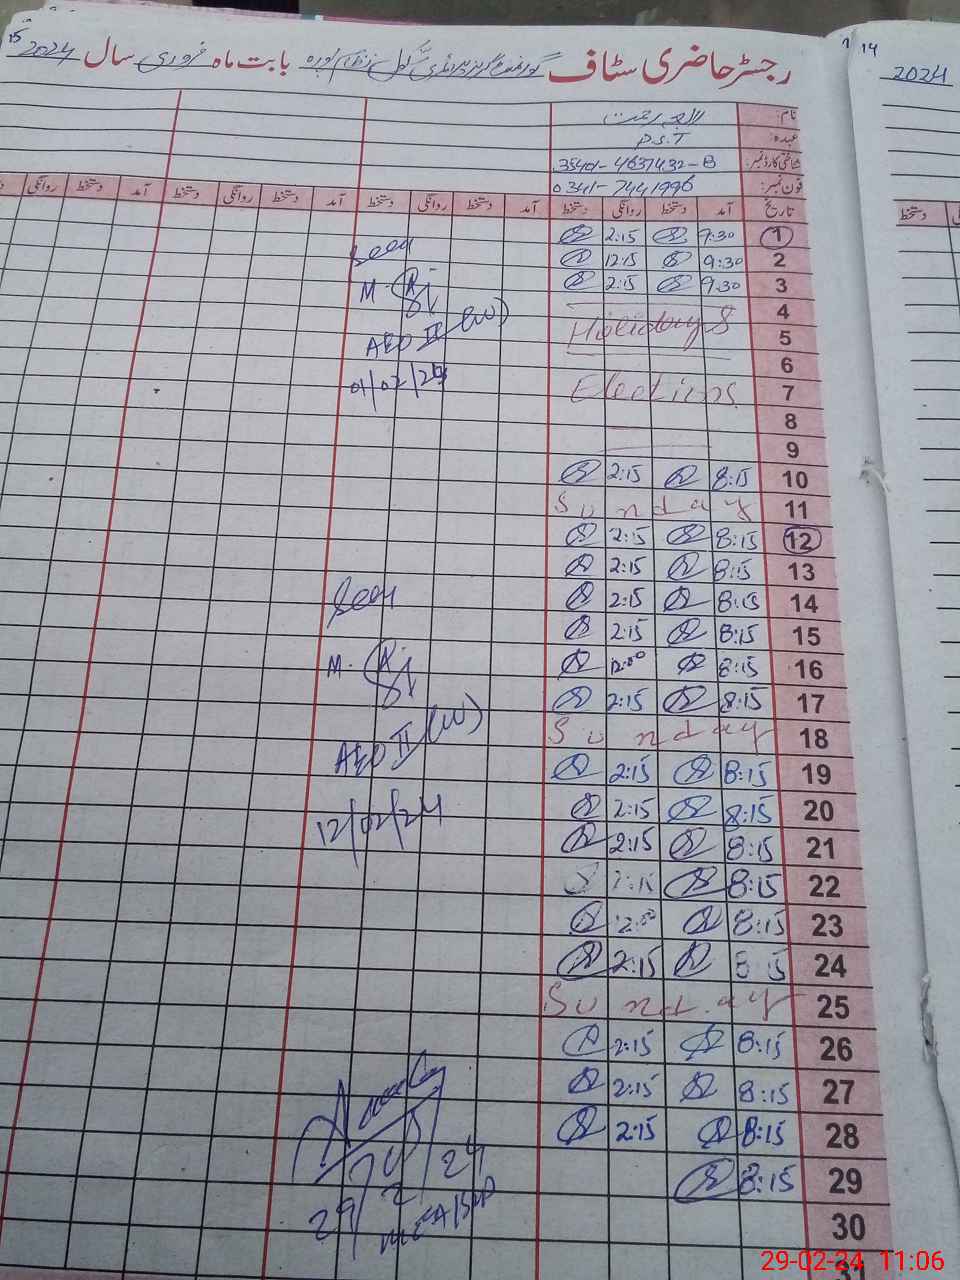 رجسٹر حاضری سٹاف بابت ماہ فروری سال 2024
2024
14
نام:
عہدہ: P.S.T
شناختی کارڈ نمبر: 4637432-B
فون نمبر: 0341-7441996
تاریخ آمد دستخط روانگی دستخط آمد دستخط روانگی دستخط آمد دستخط روانگی دستخط آمد دستخط روانگی
دستخط
1 9:30 2:15
2 9:30 12:15
3 9:30 2:15
4
5 Holidays
6
7 Elections
8
9
10 8:15 2:15
11 Sunday
12 8:15 2:15
13 8:15 2:15
14 8:15 2:15
15 8:15 2:15
16 8:15 12:00
17 8:15 2:15
18 Sunday
19 8:15 2:15
20 8:15 2:15
21 8:15 2:15
22 8:15 2:15
23 8:15 12:00
24 8:15 2:15
25 Sunday
26 8:15 2:15
27 8:15 2:15
28 8:15 2:15
29 8:15
30
31
Seen
M.
AEO II (W)
01/02/24
Seen
M.
AEO II (W)
12/02/24
29/2/24
29-02-24 11:06